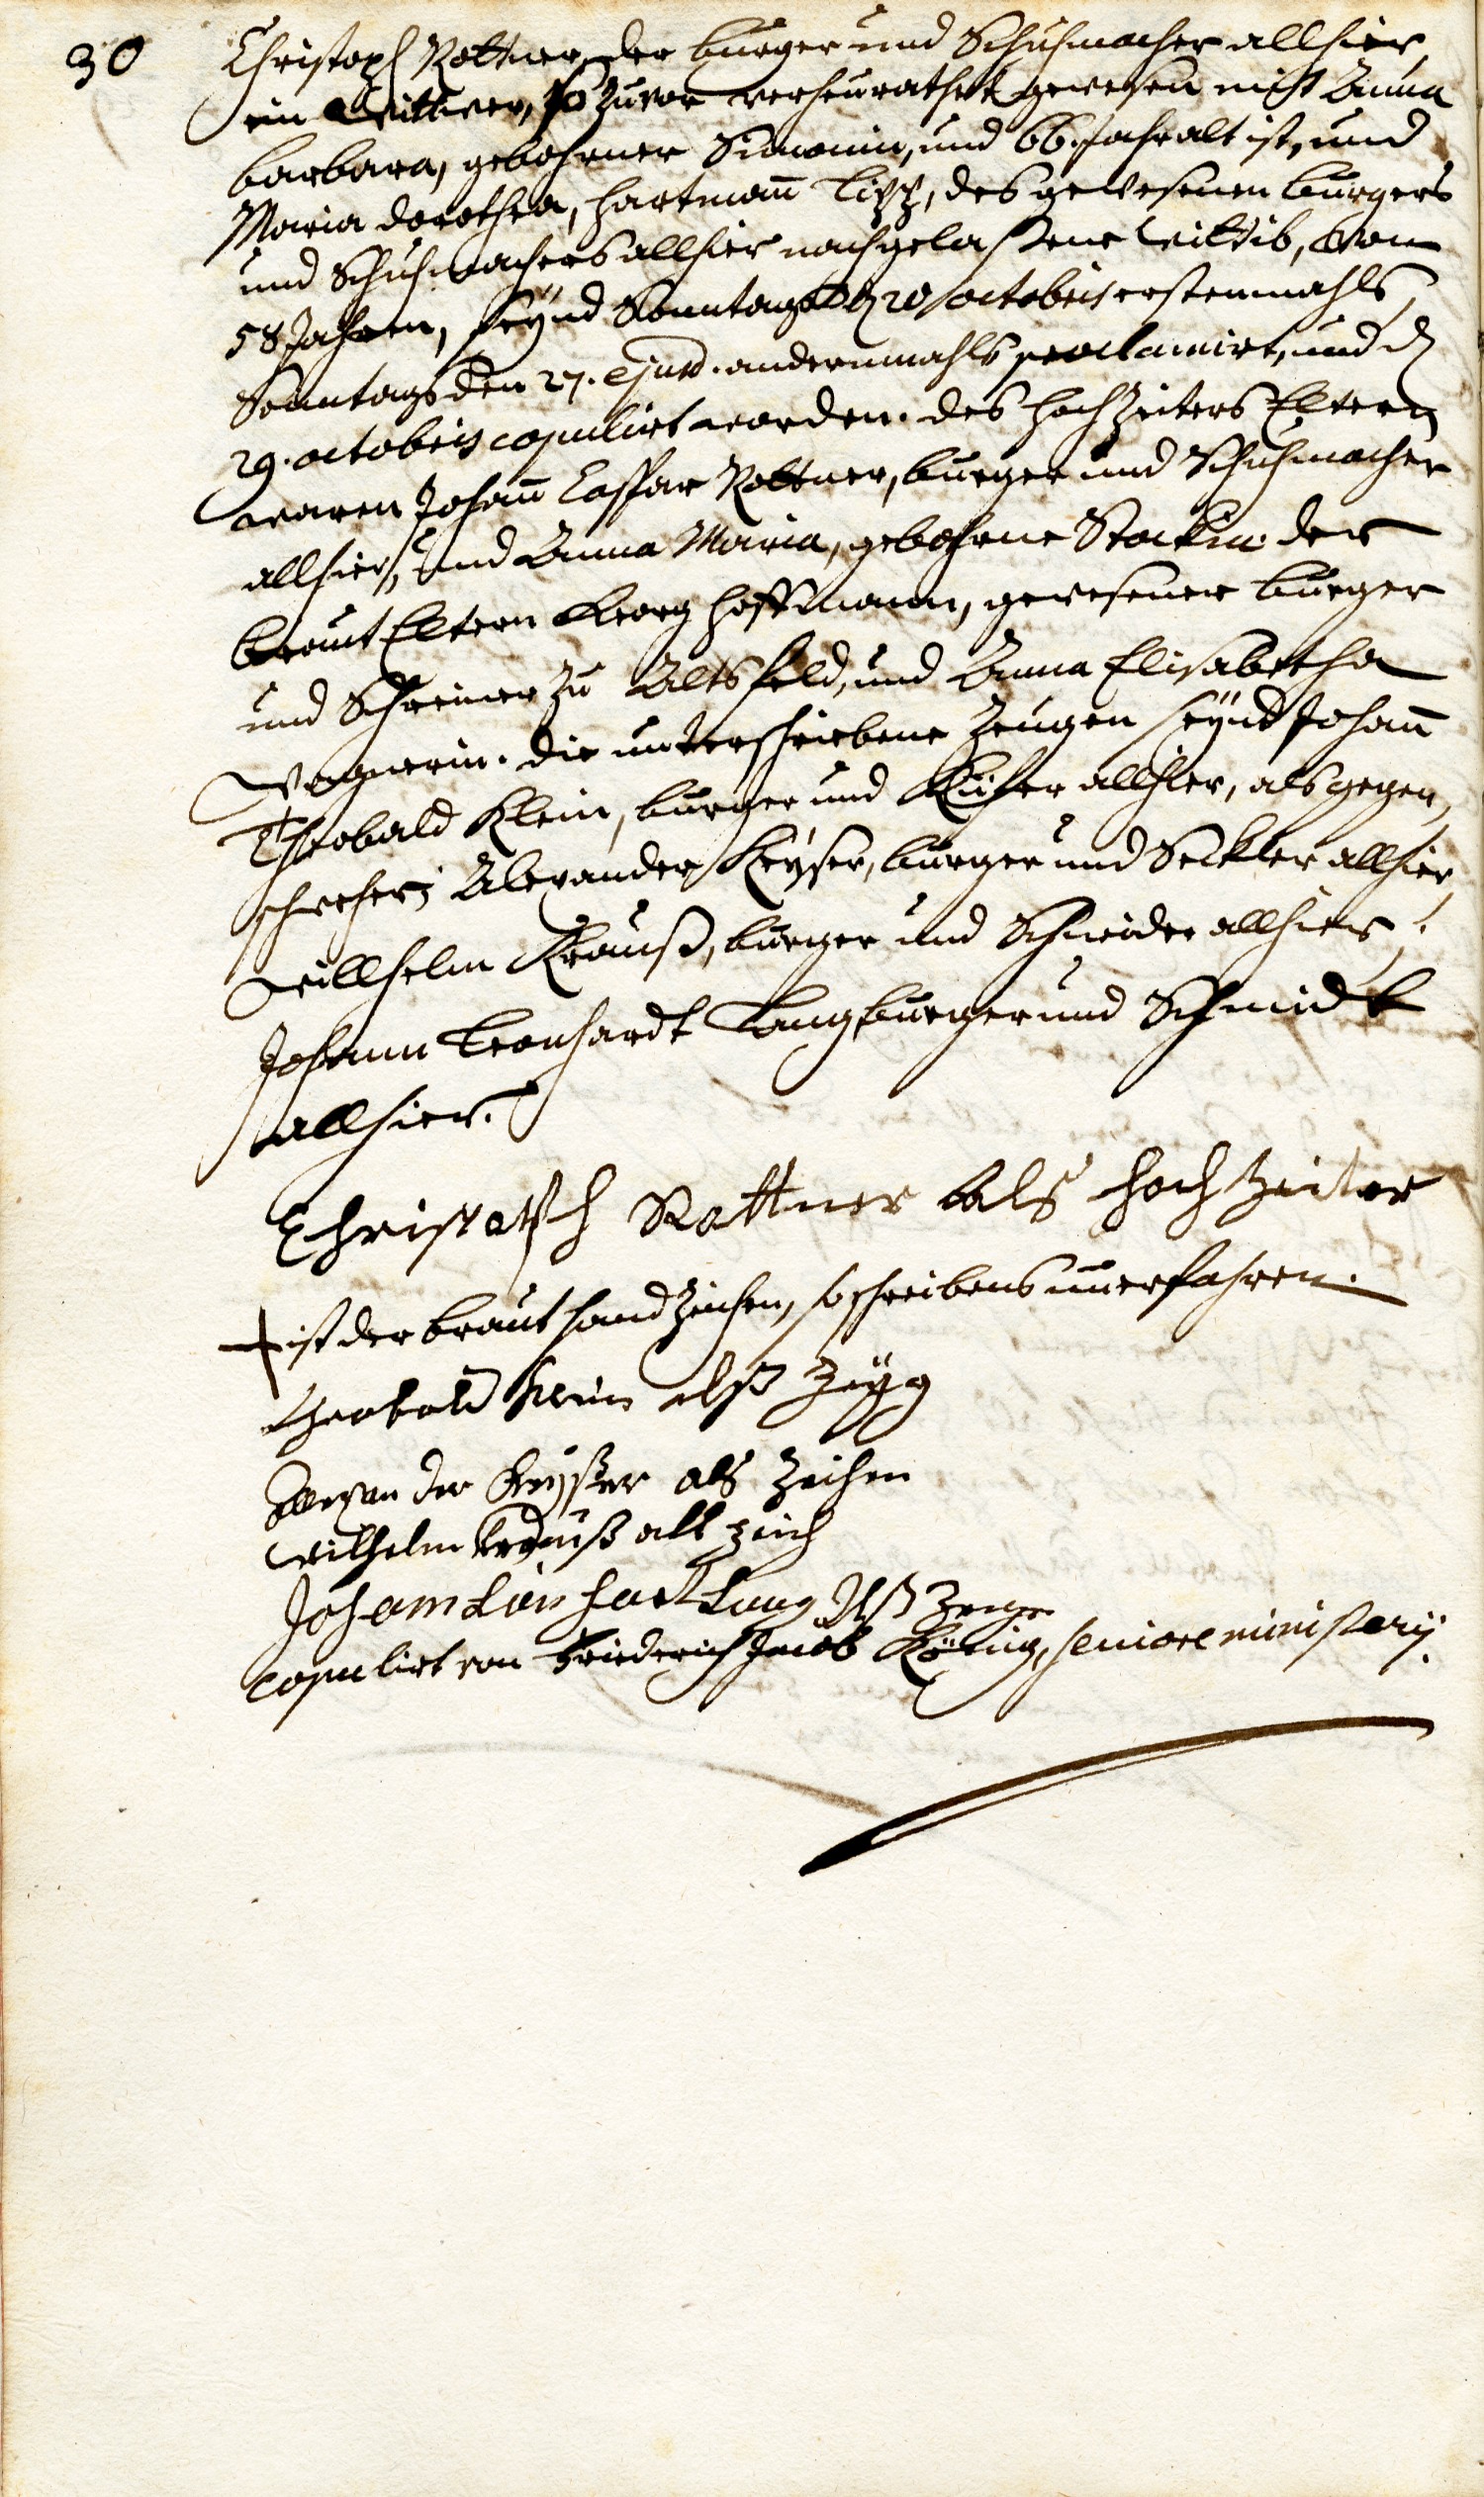 30
Christoph Rottner, der burger und Schuhmacher allhier,
ein Wittwer, so zuvor verheurathet gewesen mit Anna
barbara, gebohrner Simonin, und 66. Jahr alt ist, und
Maria dorothea, Hartmañ Lipp, des gewesenen burgers
und Schuhmachers allhier nachgelaßene Wittib, von
58 Jahren, seynd Sonntags d 20 octobris erstenmahls,
Sonntags den 27. ejusd. andernmahls proclamirt, und d
29. octobris copulirt worden. des Hochzeiters Eltern
waren Johañ Caspar Rottner, burger und Schuhmacher
allhier, und Anna Maria, gebohrne Stockin. der
braut Eltern Georg Hoffmann, gewesener burger
und Schreiner zu Altsfeld, und Anna Elisabetha
Wagnerin. die unterschriebene Zeugen seynd Johañ
Theobald Klein, burger und Küfer allhier, als gegen,
schweher; Alexander Keyser, burger und Seckler allhier,
Willhelm Krauß, burger und Schneider allhier,
Johann Leonhardt Lang, burger und Schmidt
allhier.
Christoph Rottner als hochzeiter
+ ist der braut handzeichen, so schreibens unerfahren.
Theobald Klein alß Zeyg
Allexander Keyßer als Zeichen
Wilhelm Krauß alß zeich
Johann Lönhart Lang Alß Zeuge
copulirt von Friederich Jacob König, seniore ministerÿ.